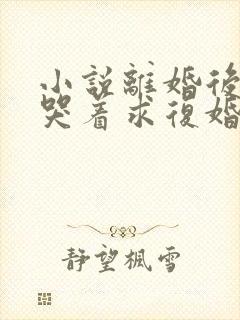 小說離婚後
哭着求復婚
靜望楓雪